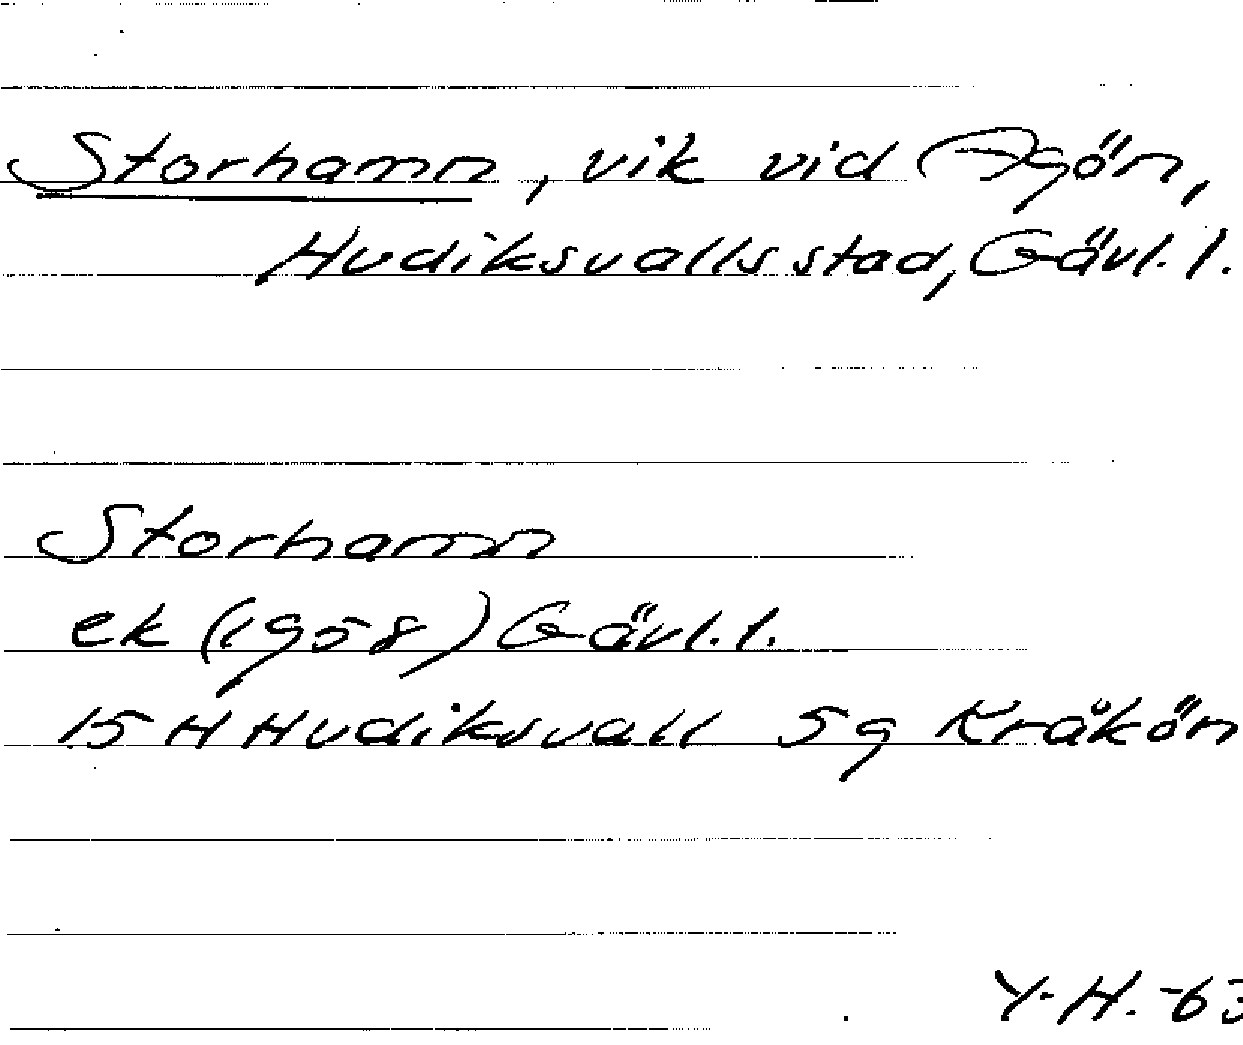 Storhamn, vik vid Agön,
Hudiksvalls stad, Gävl. l.
Storhamn
ek (1958) Gävl. l.
15 H Hudiksvall 5g Kråkön
Y. H. -63